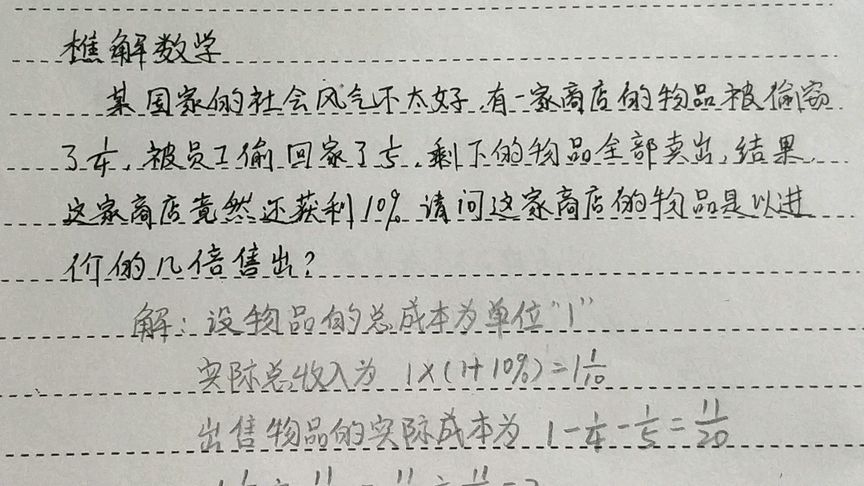 樵解数学
某国家的社会风气不太好,有一家商店的物品被偷窃
了1/4,被员工偷回家了1/5,剩下的物品全部卖出,结果,
这家商店竟然还获利10%.请问这家商店的物品是以进
价的几倍售出?
解:设物品的总成本为单位"1"
实际总收入为 1×(1+10%)=1 1/10
出售物品的实际成本为 1-1/4-1/5=11/20